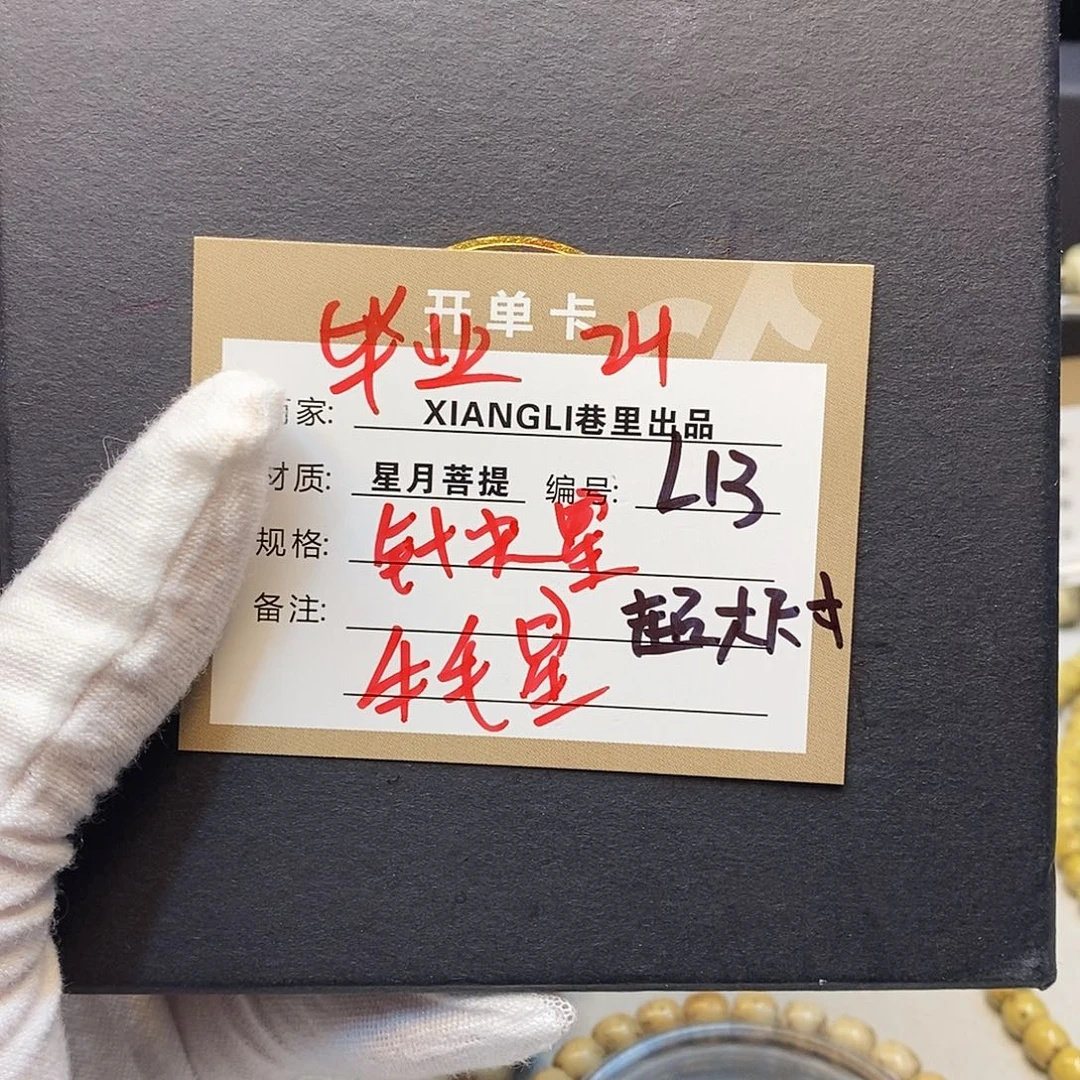 开单卡
毕业 24
商家: XIANGLI巷里出品
材质: 星月菩提 编号: L13
规格: 针尖星
备注: 超大尺寸
牛毛星